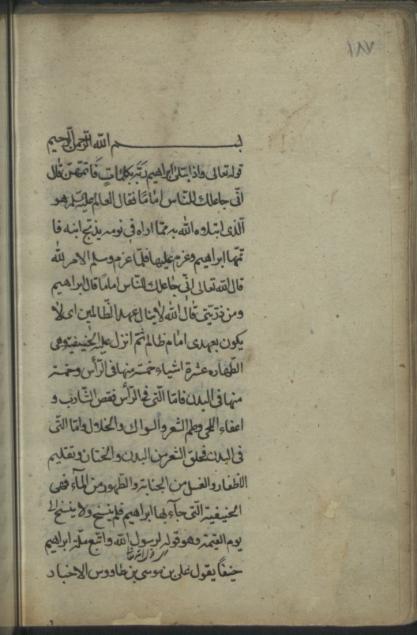 ١٨٧
بسم الله الرحمن الرحيم
قوله تعالى واذا ابتلى ابراهيم ربه بكلمات فاتمهن قال
انى جاعلك للناس اماما فقال العالم عليه السلم هو
الذى ابتلاه الله به مما اراه فى نومه بذبح ابنه فا
تمها ابراهيم وعزم عليها فلما عزم وسلم الامر لله
قال الله تعالى انى جاعلك للناس اماما قال ابراهيم
ومن ذريتى قال الله لا ينال عهد الظالمين اى لا
يكون بعهدى امام ظالم ثم انزل عليه الحنيفية وهى
الطهارة عشرة اشياء خمسة منها فى الرأس وخمسة
منها فى البدن فاما التى فى الرأس فقص الشارب و
اعفاء اللحى وطم الشعر والسواك والخلال واما التى
فى البدن فحلق الشعر من البدن والختان وتقليم
الاظفار والغسل من الجنابة والطهور من الماء فهى
الحنيفية التى جاء بها ابراهيم فلم ينسخ ولا ينسخ الى
يوم القيمة وهو قوله لرسول الله واتبع ملة ابراهيم
حنيفا يقول على بن موسى بن طاووس الاخبار